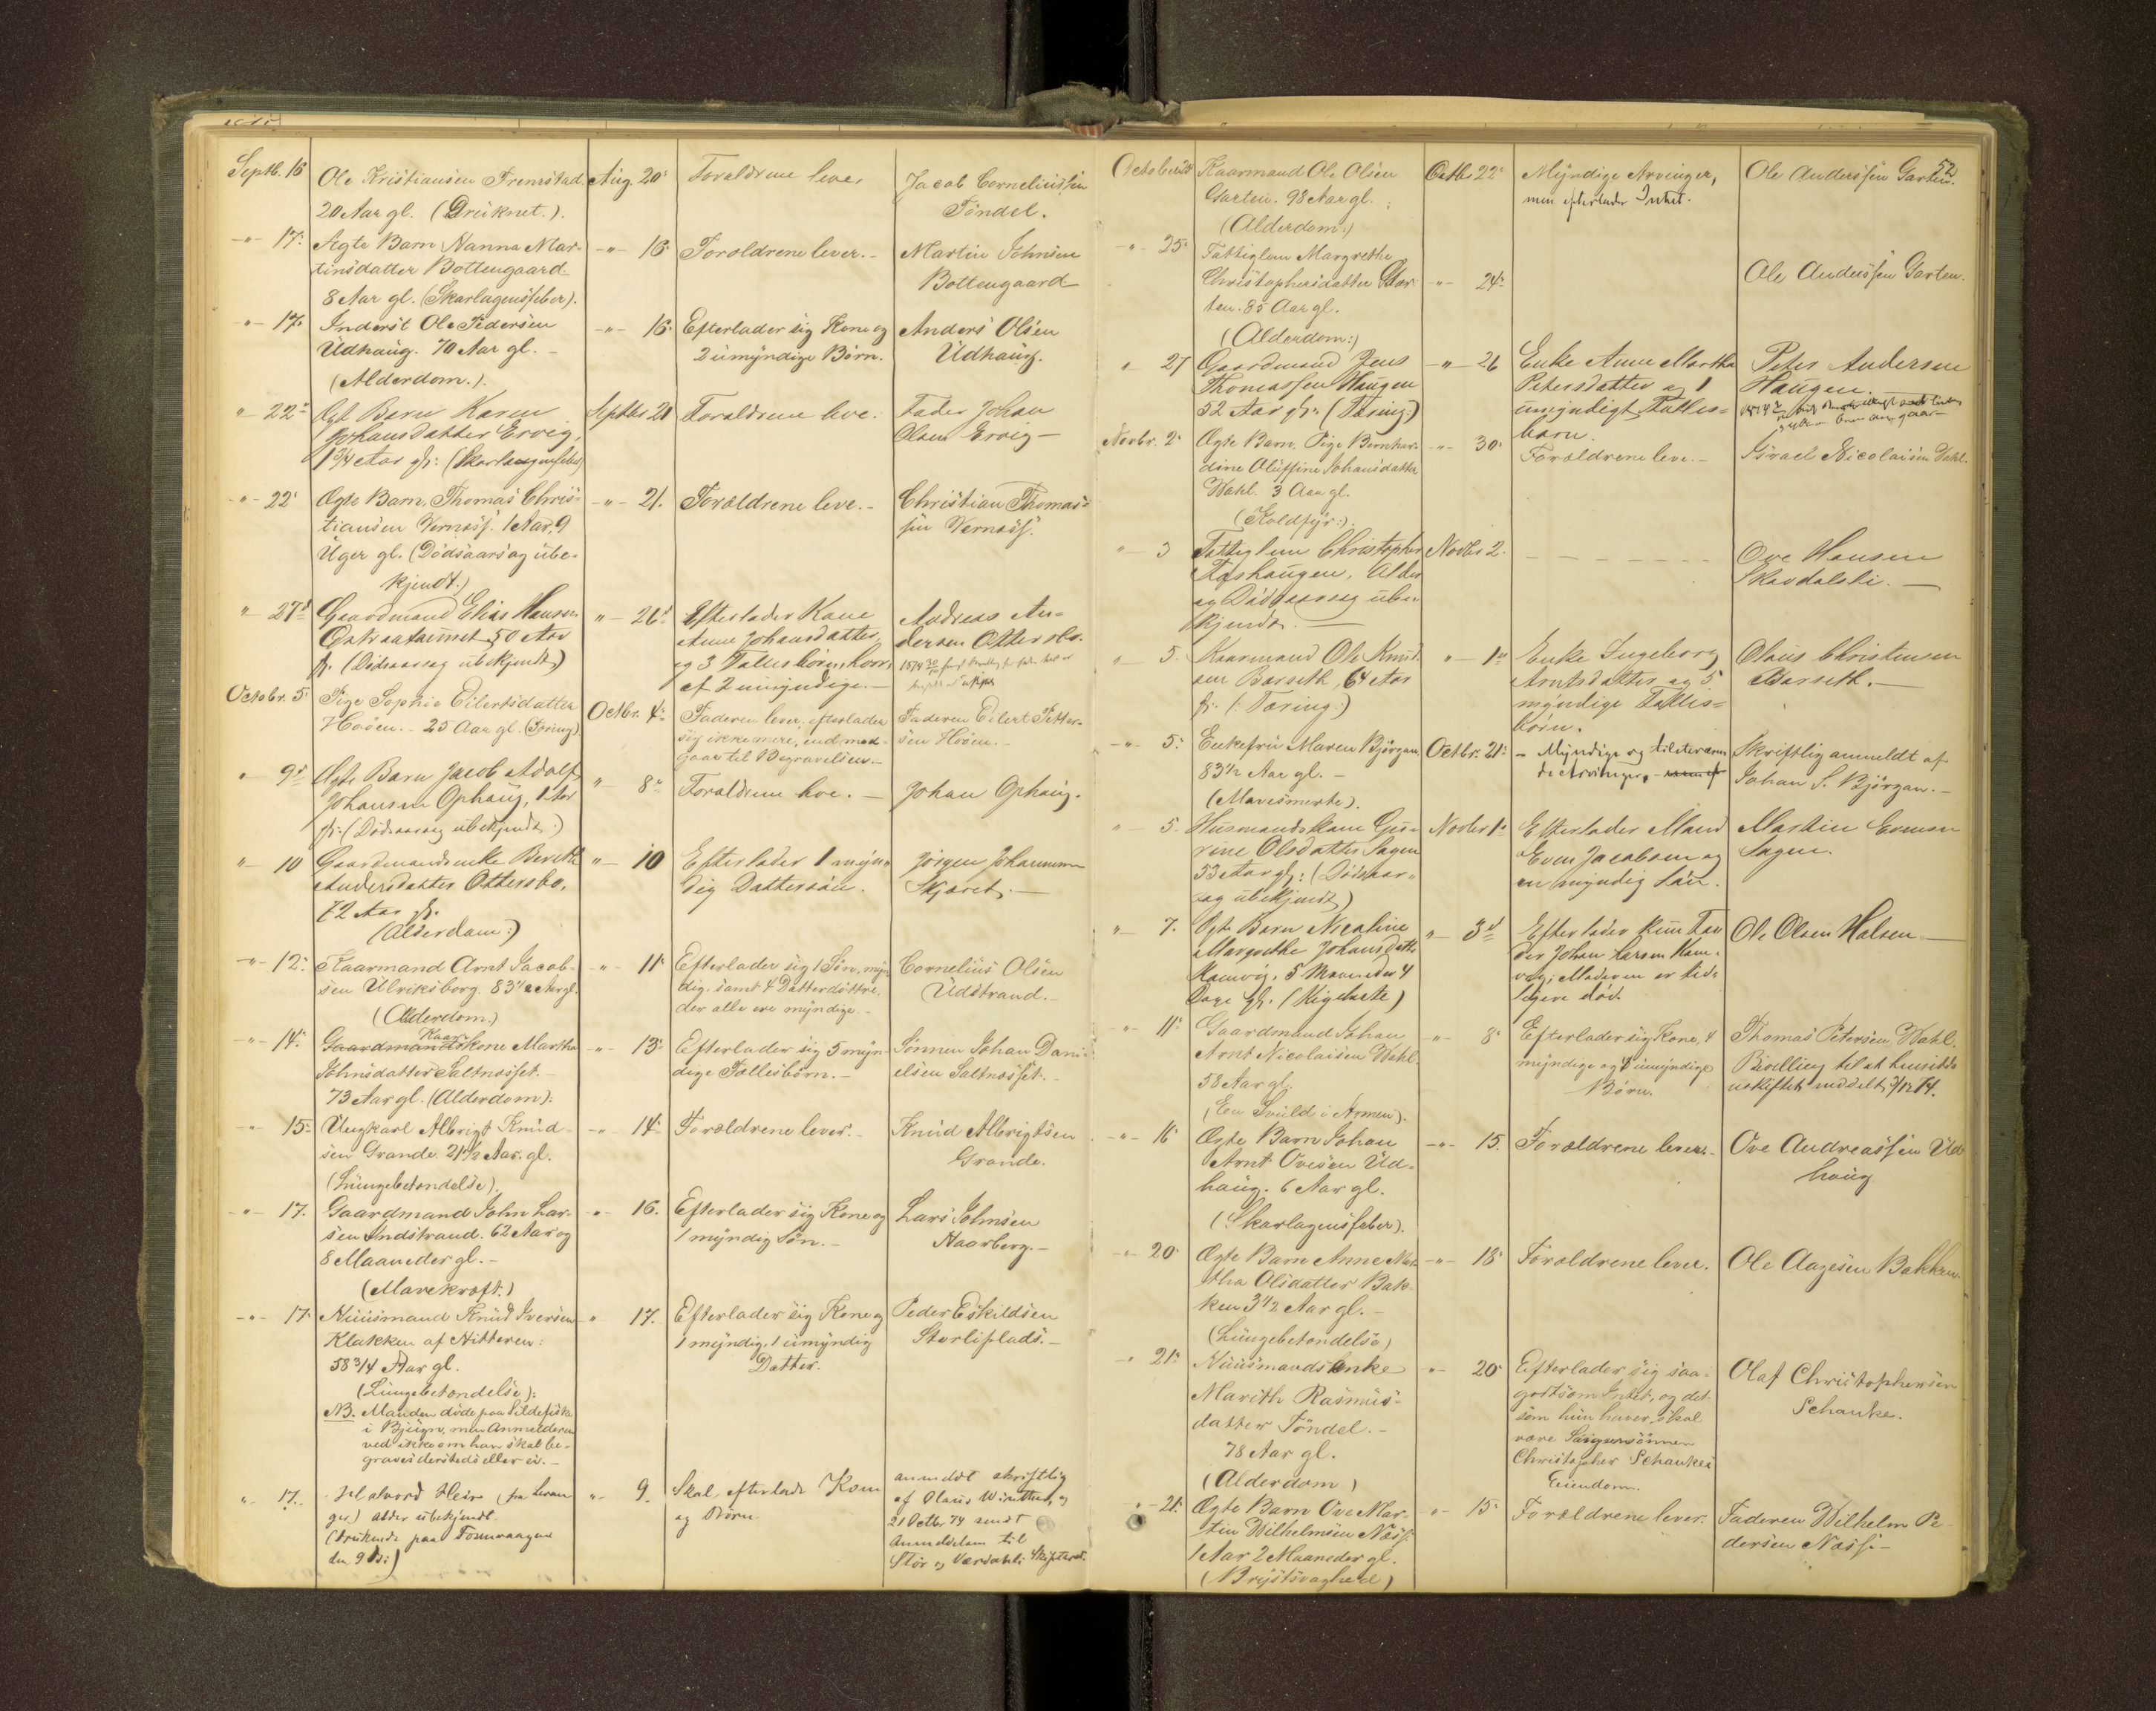 Septb. 16
Ole Kristiansen Fremstad
20 Aar gl. (Druknet.).
Aug. 20
Forældrene leve.
Jacob Corneliussen
Tøndel.
-"- 17.
Ægte Barn Nanna Mar-
tinsdatter Bottengaard
8 Aar gl. (Skarlagensfeber).
-"- 16
Forældrene lever.-
Martin Johnsen
Bottengaard
-"- 17.
Inderst Ole Pedersen
Udhaug. 70 Aar gl. -
(Alderdom.).
-"- 16.
Efterlader sig Kone og
2 umyndige Børn.
Anders Olsen
Udhaug.
" 22
Ægte Barn Karen
Johansdatter Ervig,
1 3/4 Aar gl. (Skarlagensfeber)
Septbr 21
Forældrene leve.
Fader Johan
Olsen Ervig -
-"- 22
Ægte Barn, Thomas Chris-
tiansen Vernæss. 1 Aar, 9
Uger gl. (Dødsaarsag ube-
kjendt.)
-"- 21.
Forældrene leve.-
Christian Thomas-
sen Vernæss.
" 27
Gaardmand Elias Hansen
50 Aar
gl. (Dødsaarsag ubekjendt)
" 26
Efterlader Kone
Anne Johansdatter,
og 3 Fællesbørn, hvor-
af 2 umyndige.-
Andreas An-
dersen Ottersbo.
Octobr. 5
Pige Sophie Eilertsdatter
Hoøen. - 25 Aar gl. (Tæring)
Octbr. 4
Faderen lever, efterlader
sig ikke mere, end med-
gaar til Begravelsen.-
Faderen Eilert Petter-
sen Hoøen.-
" 9
Ægte Barn Jacob Adolf
Johansen Ophaug, 1 Aar
gl. (Dødsaarsag ubekjendt.)
" 8
Forældrene leve. -
Johan Ophaug.
" 10
Gaardmandsenke Berethe
Andersdatter Ottersbo,
72 Aar gl.
(Alderdom.)
" 10
Efterlader 1 myn-
dig Dattersøn.
Jørgen Johannesen
Skjæret. -
-"- 12.
Kaarmand Arnt Jacob-
sen Ulriksborg. 83 1/2 Aar gl.
(Alderdom.)
-"- 11
Efterlader sig 1 Søn, myn-
dig, samt 4 Datterdøttre,
der alle ere myndige.-
Cornelius Olsen
Udstrand.-
-"- 14.
Kaar-
Gaardmandskone Martha
Johnsdatter Saltnæsset.-
73 Aar gl. (Alderdom).
-"- 13
Efterlader sig 5 myn-
dige Fællesbørn.-
Sønnen Johan Dani-
elsen Saltnæsset.-
-"- 15.
Ungkarl Albrigt Knud-
sen Grande. 21 1/2 Aar. gl.
(Lungebetændelse).
-"- 14.
Forældrene lever.-
Knud Albrigtsen
Grande.
-"- 17.
Gaardmand John Lar-
sen Indstrand. 62 Aar og
8 Maaneder gl. -
(Mavekræft.)
-"- 16.
Efterlader sig Kone og
1 myndig Søn.-
Lars Johnsen
Haarberg.-
-"- 17.
Huusmand Knud Iversen
Klakken af Hitteren:
58 3/4 Aar gl.
(Lungebetændelse):
NB. Manden døde paa Sildefiske
i Bjugn, men Anmelderen
ved ikke om han skal be-
graves dersteds eller ei.-
" 17.
Efterlader sig Kone og
1 myndig, 1 umyndig
Datter.
Peder Eskildsen
Storliplads.-
"- 17.
Halvord Hein (fra Levan-
ger) Alder ubekjendt.
(druknede paa Fosenvaagen
den 9 ds:)
" 9
Skal efterlade Kone
og Børn.
anmeldt skriftlig
af Olaus
21 Octbr 74 sendt
Anmeldelsen til
Stør og Værdals Skifteret.
52
October
Kaarmand Ole Olsen
Garten. 98 Aar gl.
(Alderdom.)
Octbr 22
Myndige Arvinger,
men efterlader Intet.
Ole Anderssen Garten.
-"- 25
Fattiglem Margrethe
Christophersdatter Gar-
ten. 85 Aar gl.
(Alderdom:)
-"- 24
Ole Anderssen Garten.
" 27
Gaardmand Jens
Thomassen Haugen
52 Aar gl. (Tæring.)
-"- 26
Enke Anne Martha
Petersdatter og 1
umyndigt Fælles-
barn.
Peter Andersen
Haugen.
Novbr. 2
Ægte Barn, Pige Bernhar-
dine Oluffine Johansdatter
Wahl. 3 Aar gl.
(Koldfyr:).
-"- 30
Forældrene leve.-
Israel Nicolaisen Dahl.
" 3
Fattiglem Christopher
Alder
og Dødsaarsag ube-
kjendt. -
Novbr 2.
- - - - - -
Ove Hansen
" 5.
Kaarmand Ole Knud-
sen Barseth, 64 Aar
gl. (: Tæring:)
" 1
Enke Ingeborg
Arntsdatter og 5
myndige Fælles-
børn.
Olaus Christensen
Barseth. -
-"- 5.
Enkefru Maren Bjørgan
83 1/2 Aar gl. -
(Mavesmerte).
Octbr. 21
- Myndige og tilstedeværen-
de Arvinger. -
Skriftlig anmeldt af
Johan S. Bjørgan.-
" 5.
Husmandskone Gu-
rine Olsdatter Sagen
53 Aar gl. (Dødsaar-
sag ubekjendt)
Novbr 1
Efterlader Mand
Even Jacobsen og
en myndig Søn.
Martin Evensen
Sagen.
" 7.
Ægte Barn Nicoline
Margrethe Johansdatter
Ramvig, 5 Maaneder 4
Dage gl. (Kighoste)
" 3
Efterlader kun Fa-
der Johan Larsen Ram-
vig, Moderen er tid-
ligere død.
Ole Olsen Halsen -
-"- 11
Gaardmand Johan
Arnt Nicolaisen Wahl.
58 Aar gl.
(En Svuld i Armen).
"- 8
Efterlader sig Kone, 4
myndige og umyndige
Børn.
Thomas Petersen Wahl.
Bevilling til at hensidde
uskiftet meddelt 7/12 74.
-"- 16
Ægte Barn Johan
Arnt Ovesen Ud-
haug. 6 Aar gl.
(Skarlagensfeber).
-"- 15.
Forældrene lever.-
Ove Andreassen Ud-
haug
-"- 20
Ægte Barn Anne Mar-
tha Olsdatter Bak-
ken 3 1/2 Aar gl.-
(Lungebetændelse)
-"- 18
Forældrene lever.
Ole Aagesen Bakken.
-"- 21
Huusmandsenke
Marith Rasmus-
datter Tøndel.-
78 Aar gl.
(Alderdom)
"- 20
Efterlader sig saa-
godtsom Intet, og det
som hun haver, skal
være Svigersønnen
Christopher Schankes
Eiendom.
Olaf Christophersen
Schanke.
"- 21.
Ægte Barn Ove Mar-
tin Wilhelmsen Næss.
1 Aar 2 Maaneder gl.
(Brystsvaghed)
"- 15
Forældrene lever.
Faderen Wilhelm Pe-
dersen Næss.-